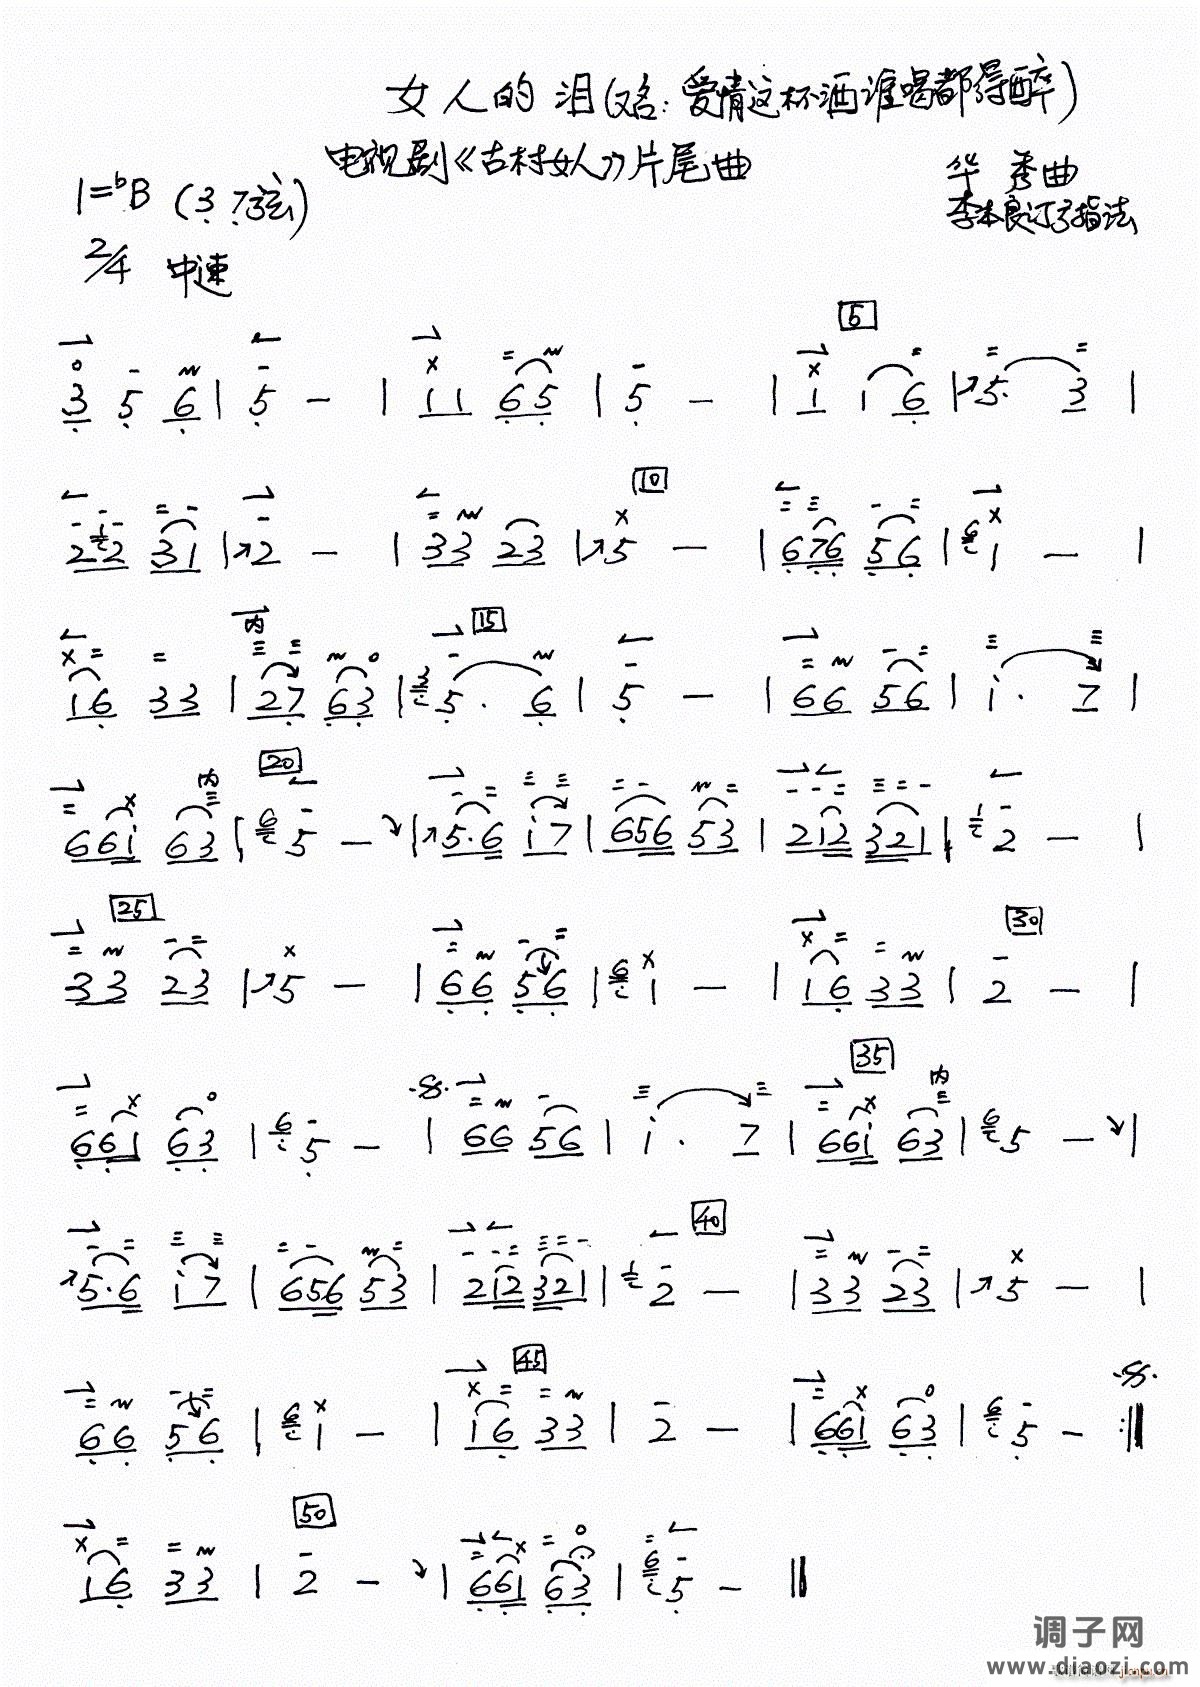 女人的泪(又名:爱情这杯酒谁喝都得醉)
电视剧《古村女人》片尾曲
华秀曲
李本良订弓指法
1=♭B (3̣ 7̣弦)
2/4 中速
5
3̣ 5̣ 6̣ | 5̣ - | 1 1 6̣ 5̣ | 5̣ - | 1 1 6̣ | 5̣· 3̣ |
10
2 2 2 3 1 | 2 - | 3 3 2 3 | 5 - | 6̣ 7̣ 6̣ 5̣ 6̣ | 1 - |
内 15
1 6̣ 3 3 | 2 7̣ 6̣ 3̣ | 5̣· 6̣ | 5̣ - | 6 6 5 6 | i· 7 |
20 内
6 6 i 6 3 | 5 - | 5·6 i 7 | 6 5 6 5 3 | 2 1 2 3 2 1 | 2 - |
25 30
3 3 2 3 | 5 - | 6̣ 6̣ 5̣ 6̣ | 1 - | 1 6̣ 3 3 | 2 - |
35 内
6̣ 6̣ 1 6̣ 3̣ | 5̣ - | 6 6 5 6 | i· 7 | 6 6 i 6 3 | 5 - |
40
5·6 i 7 | 6 5 6 5 3 | 2 1 2 3 2 1 | 2 - | 3 3 2 3 | 5 - |
45
6̣ 6̣ 5̣ 6̣ | 1 - | 1 6̣ 3 3 | 2 - | 6̣ 6̣ 1 6̣ 3̣ | 5̣ - :‖
50
1 6̣ 3 3 | 2 - | 6̣ 6̣ 1 6̣ 3̣ | 5̣ - ‖
调子网
www.diaozi.com